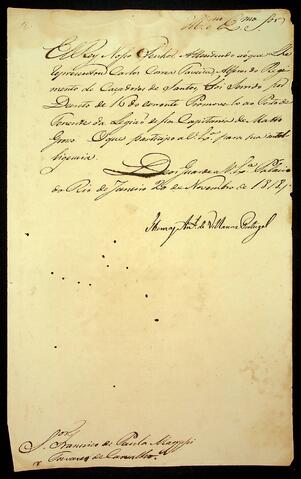 Ill.mo e Ex.mo Sõr
El Rey Nosso Senhor Attendendo ao que lhe
representou Carlos Pereira Alferes do Regi-
mento de Caçadores de Santos, foi servido por
Decreto de 16 do corrente Promovelo ao Posto de
Tenente da Legião de sua Capitania de Matto
Grosso O que participo a V. Ex.ª para sua intel-
ligencia.
Deos Guarde a V. Ex.ª Palacio
do Rio de Janeiro 26 de Novembro de 1818,
Thomaz Ant.º de Villanova Portugal
Sõr Francisco de Paula Maggessi
Tavares de Carvalho.